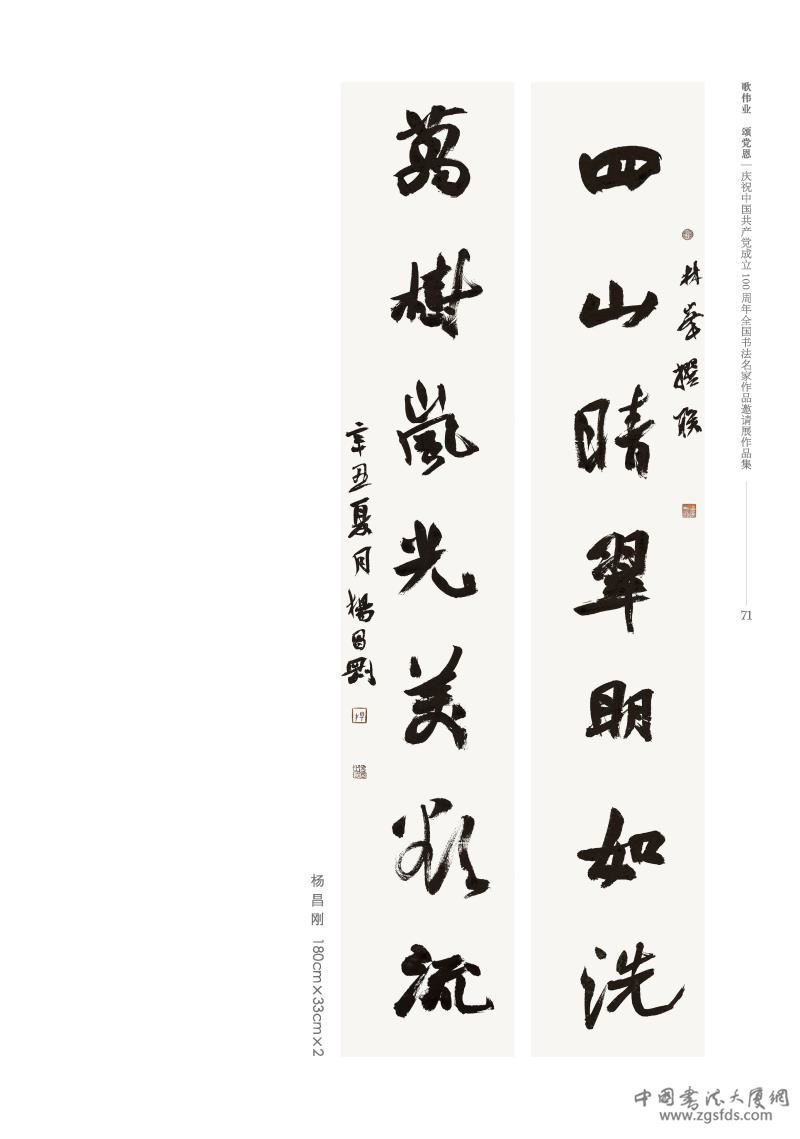 四山晴翠明如洗
林峯撰联
萬樹嵐光美欲流
辛丑夏月楊昌剛
歌伟业 颂党恩|庆祝中国共产党成立100周年全国书法名家作品邀请展作品集
71
杨昌刚 180cm×33cm×2
中国书法大厦網
www.zgsfds.com